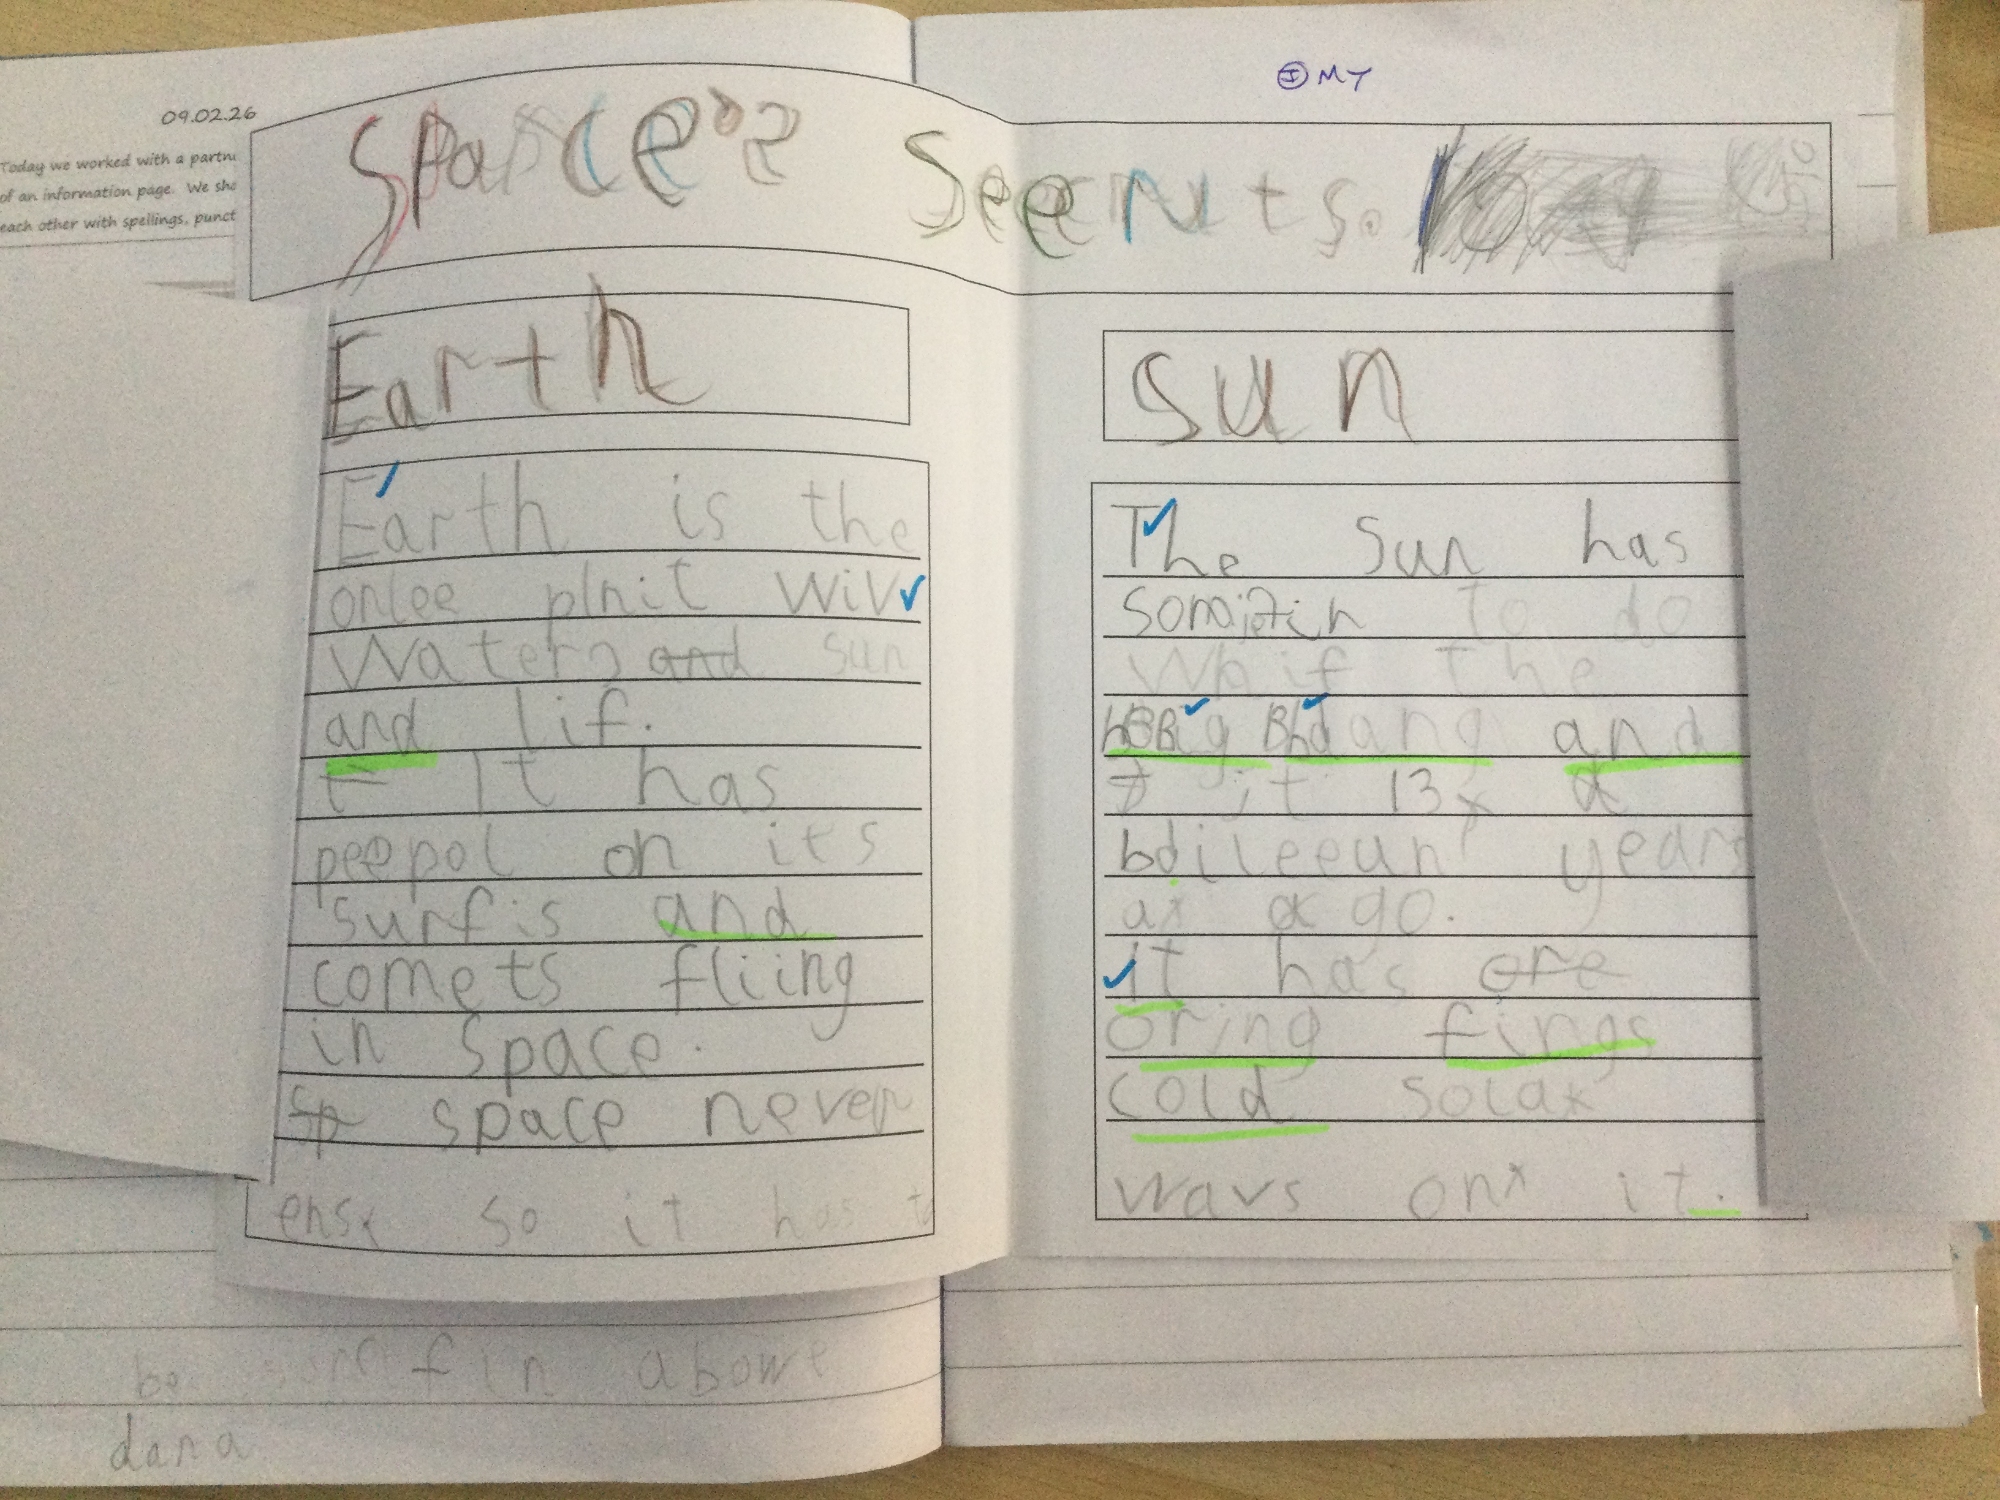 09.02.26
Today we worked with a partn
of an information page. We sha
each other with spellings, punct
I MY
Space's Seecruts.
Earth
Earth is the
onlee plnit wiv
Water, and sun
and lif.
t It has
peepol on its
surfis and
comets fliing
in space.
Sp space never
ens so it has to
be fin abowt
dana
Sun
The Sun has
to do
the
Big Bang and
it 13
bileeun years
a go.
it has ore
oring fings
cold solar
wavs on it.